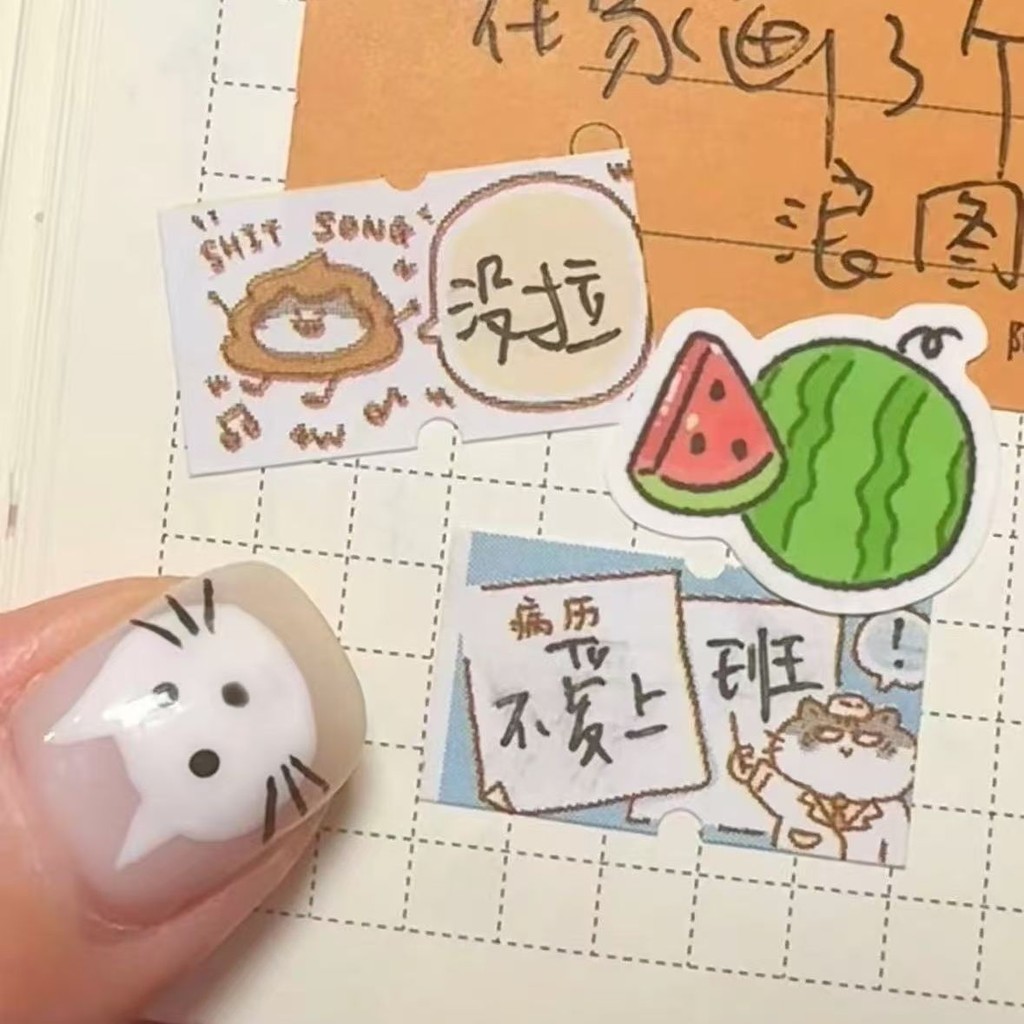 在家画了个
浪图
SHIT SONG
没拉
病历
不爱上
班
!